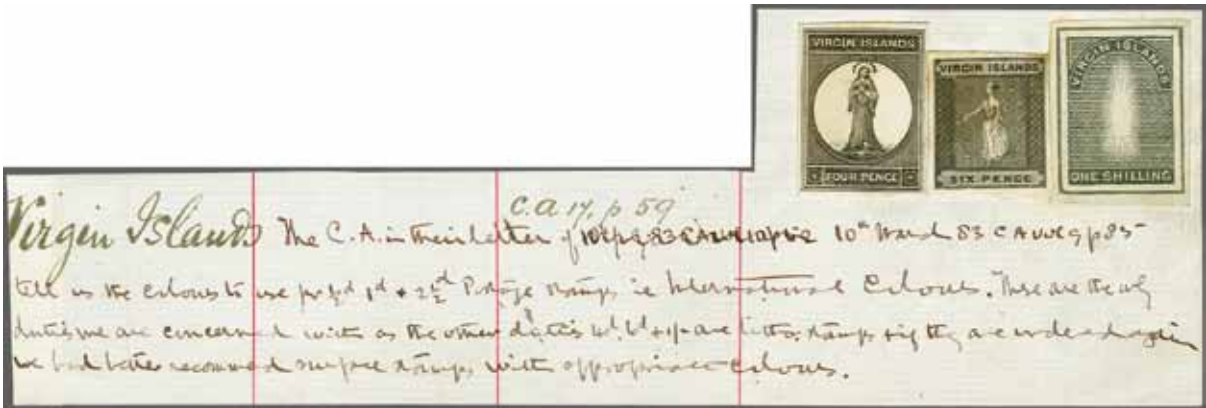 VIRGIN ISLANDS
FOUR PENCE
VIRGIN ISLANDS
SIX PENCE
VIRGIN ISLANDS
ONE SHILLING
C.A. 17, p 59
Virgin Islands The C.A. in their letter of 10th March 83 C A p 85
tell us the colours to use for ½d 1d + 2½d Postage stamps ie International Colours. These are the only
duties we are concerned with as the other duties 4d, 6d + 1/- are litho. stamps & if they are ordered again
we had better recommend surface stamps with appropriate colours.